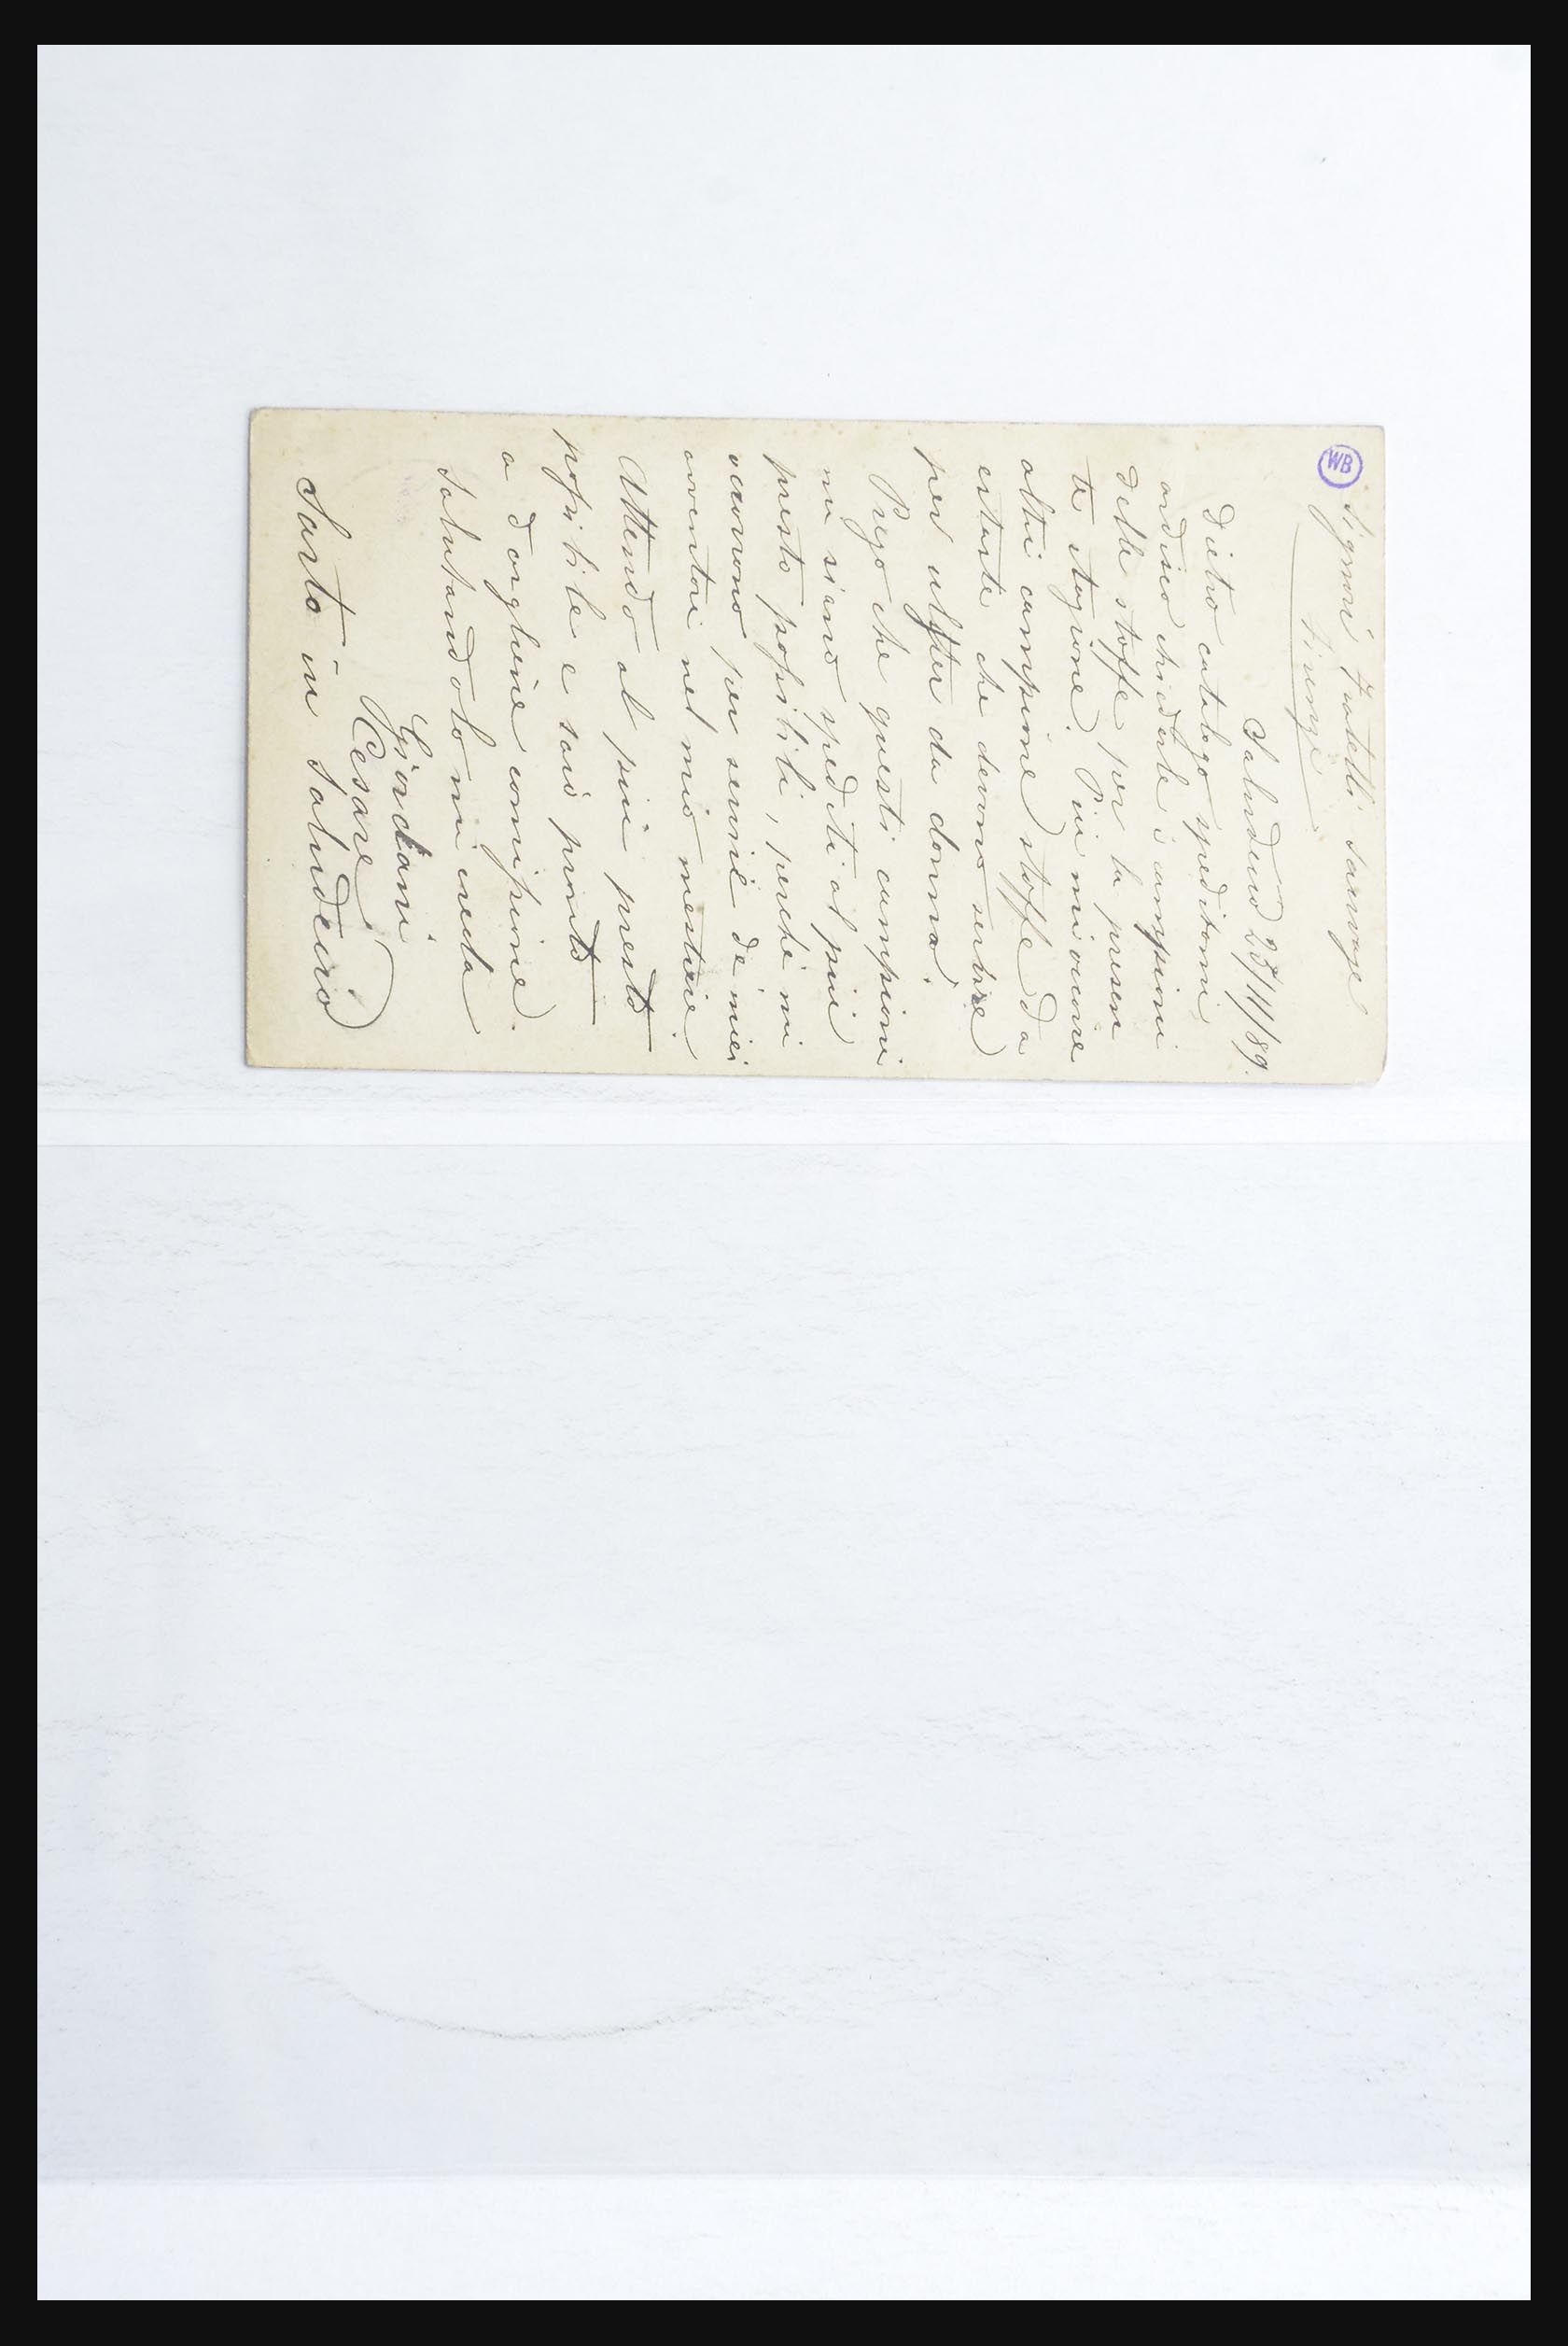 WB
Signori Fratelli Sauvage
Firenze
Saludecio 23/11/89.
Dietro catalogo speditomi,
ardisco chiederle i campioni
delle stoffe per la presen
te stagione. Più mi occorre
altri campione stoffe da
estate che devono servire
per ulster da donna.
Prego che questi campioni
mi siano spediti al più
presto possibile, perché mi
occorrono per servire de miei
avventori nel mio mestiere.
Attendo al più presto
possibile e sarò pronto
a dargliene commissione.
Salutandolo mi creda
Giordani
Cesare
Sarto in Saludecio